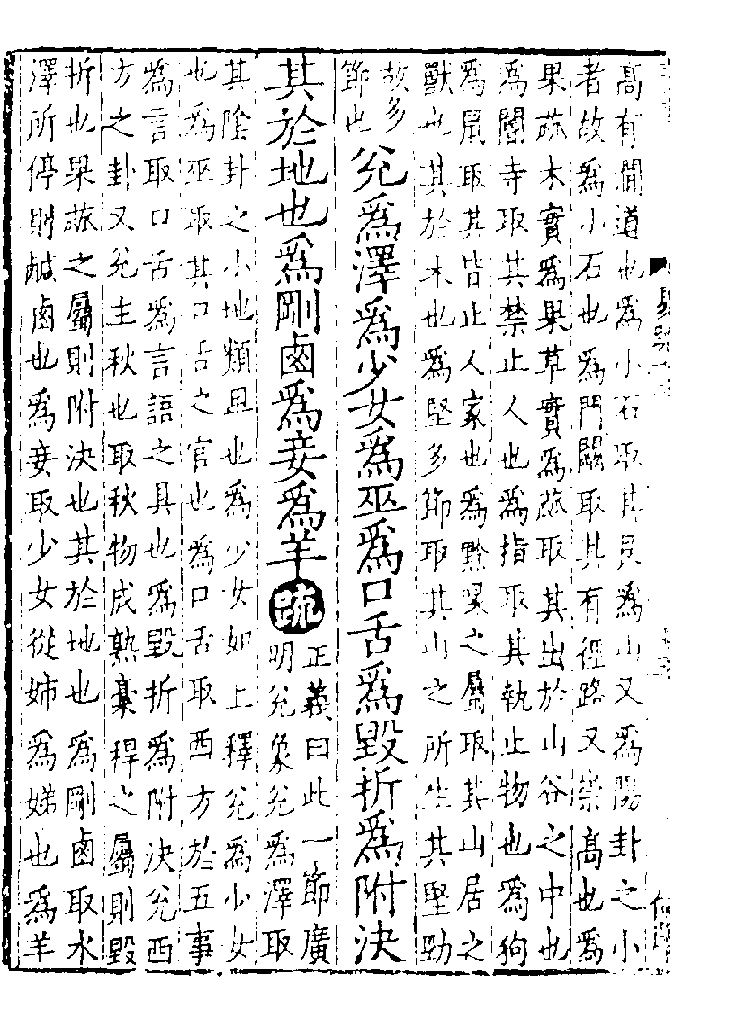 高有間道也爲小石取其艮爲山又爲陽卦之小
者故爲小石也爲門闕取其有徑路又崇高也爲
果蓏木實爲果草實爲蓏取其出於山谷之中也
爲閽寺取其禁止人也爲指取其執止物也爲狗
爲鼠取其皆止人家也爲黔喙之屬取其山居之
獸也其於木也爲堅多節取其山之所生其堅勁
故多
節也
兌爲澤爲少女爲巫爲口舌爲毀折爲附決
其於地也爲剛鹵爲妾爲羊疏
正義曰此一節廣
明兌象兌爲澤取
其陰卦之小地類卑也爲少女如上釋兌爲小女
也爲巫取其口舌之官也爲口舌取西方於五事
爲言取口舌爲言語之具也爲毀折爲附決兌西
方之卦又兌主秋也取秋物成熟槀稈之屬則毀
折也果蓏之屬則附決也其於地也爲剛鹵取水
澤所停則鹹鹵也爲妾取少女從姉爲娣也爲羊